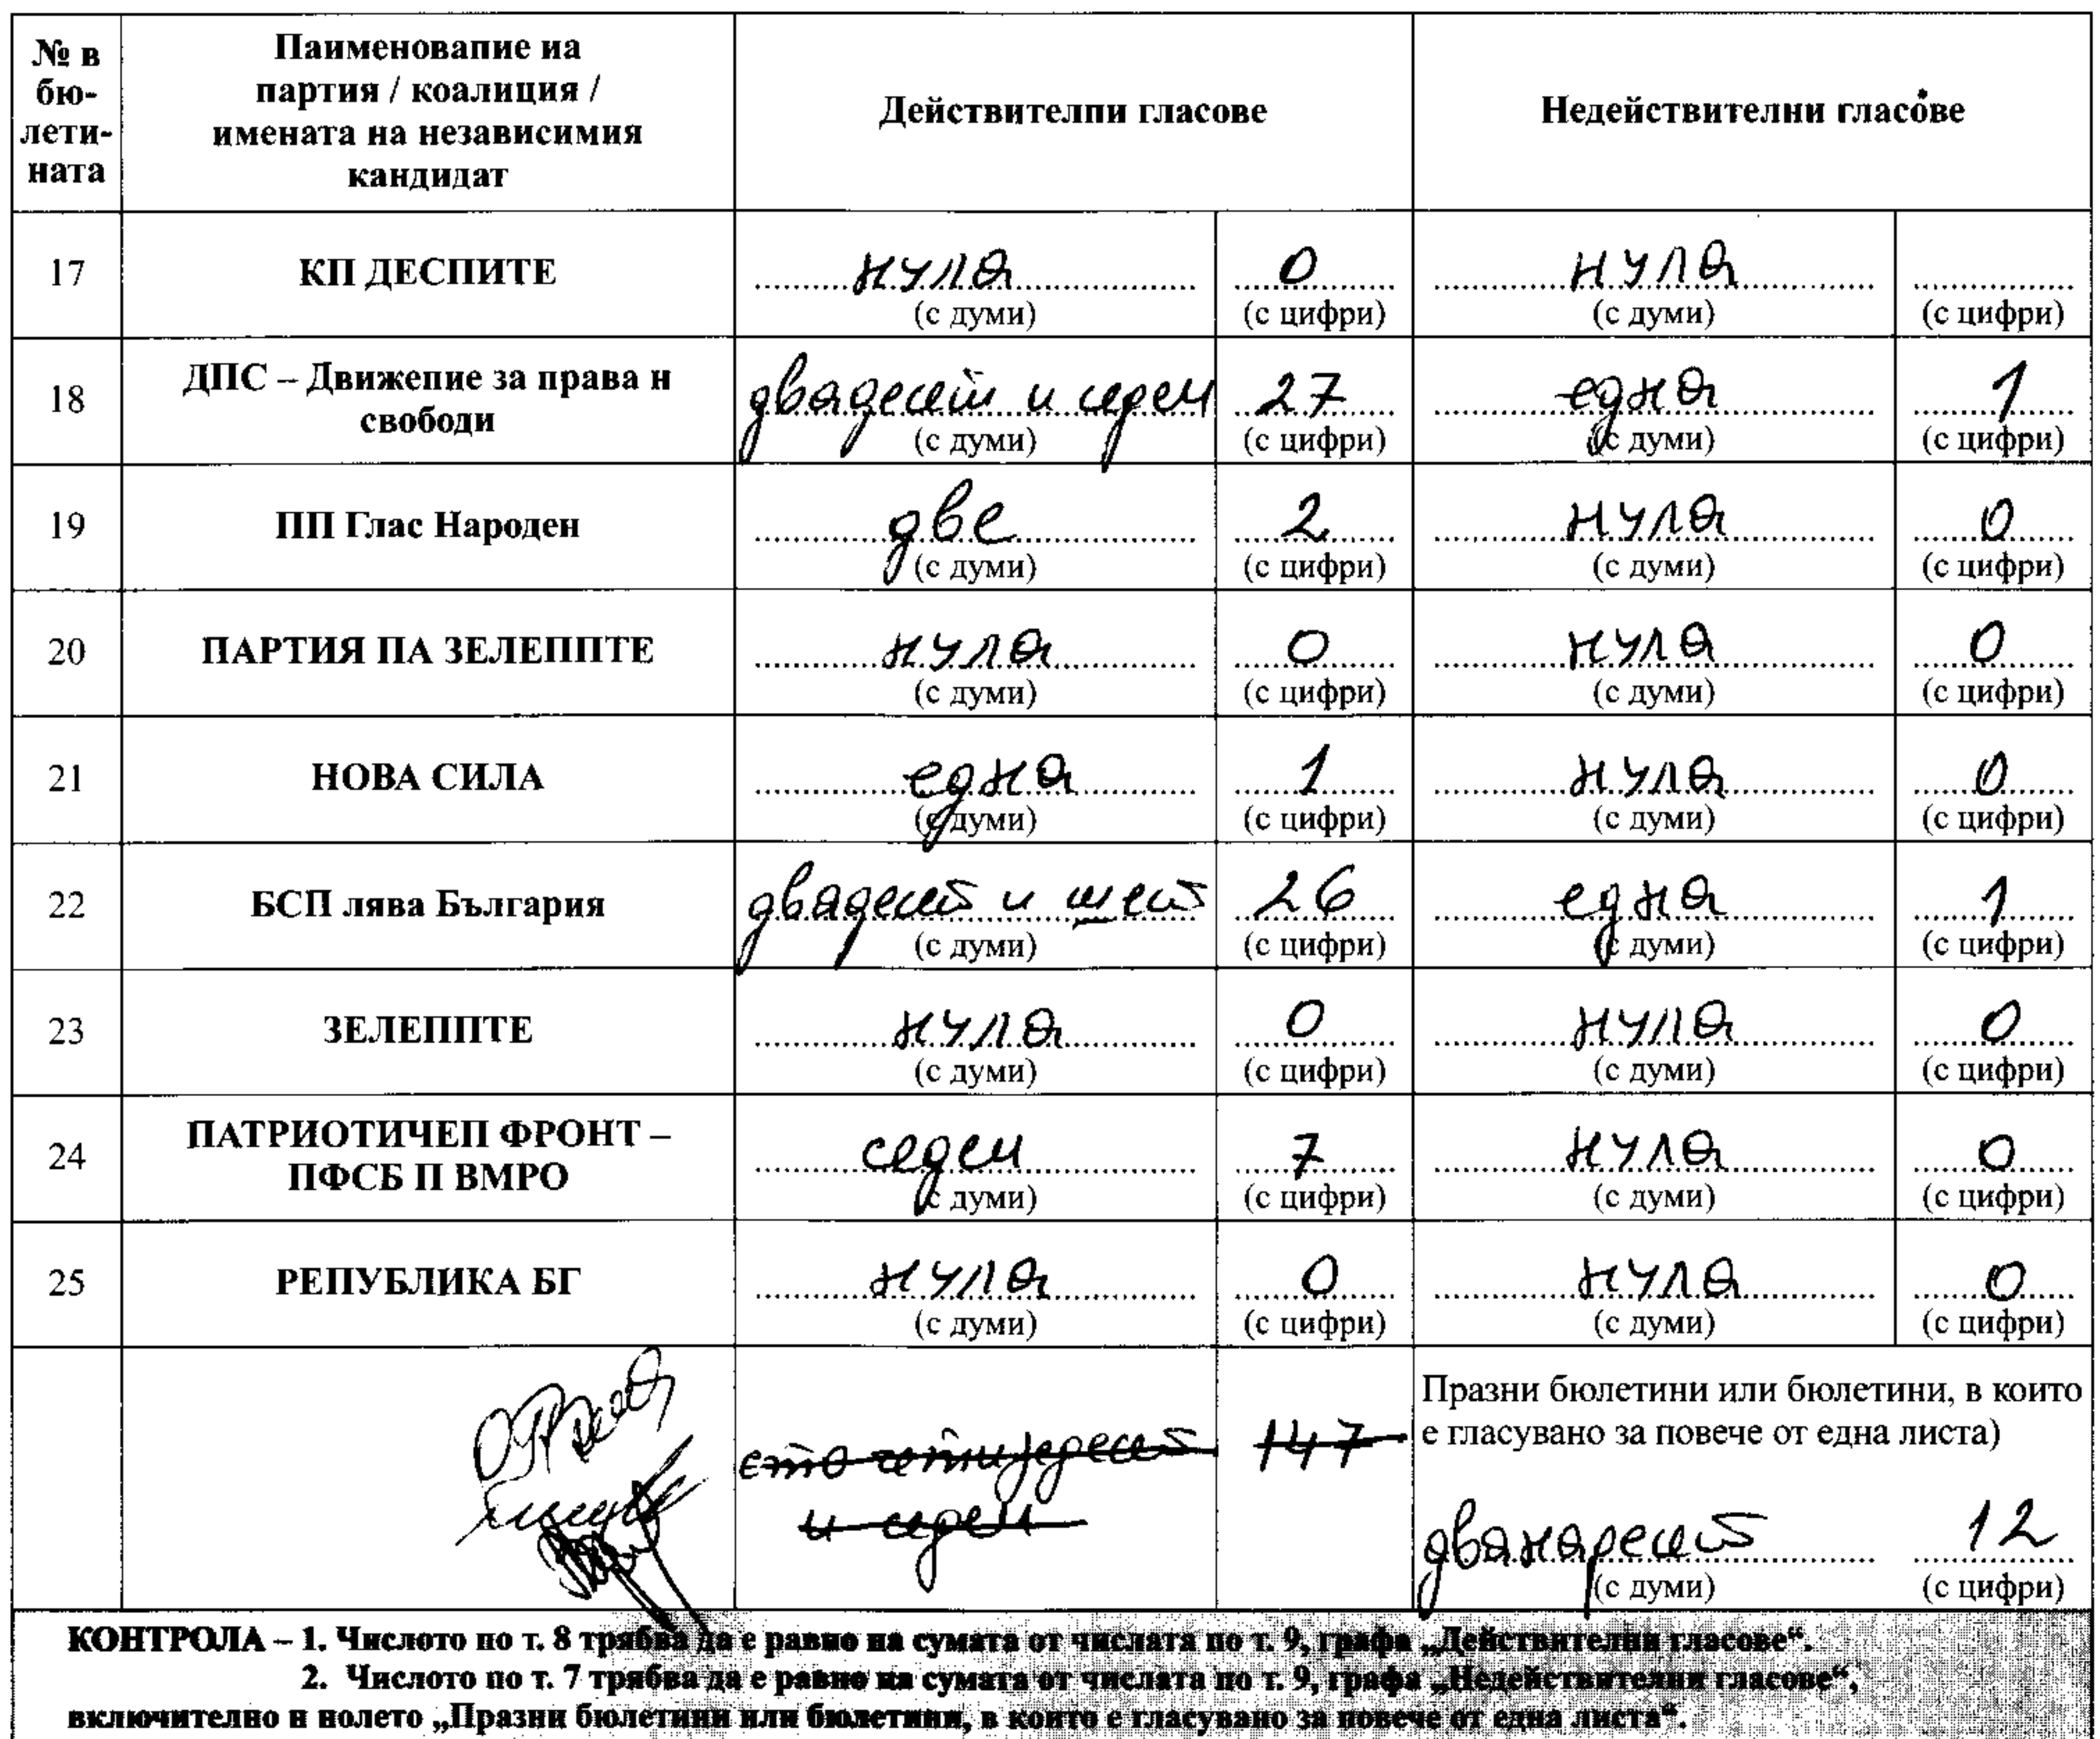 № в бю-лети-ната
Паименовапие иа партия / коалиция / имената на независимия кандидат
Действителпи гласове
Недействителни гласове
17 КП ДЕСПИТЕ нула 0 нула
(с думи) (с цифри) (с думи) (с цифри)
18 ДПС – Движепие за права н свободи двадесет и седем 27 една 1
(с думи) (с цифри) (с думи) (с цифри)
19 ПП Глас Народен две 2 нула 0
(с думи) (с цифри) (с думи) (с цифри)
20 ПАРТИЯ ПА ЗЕЛЕППТЕ нула 0 нула 0
(с думи) (с цифри) (с думи) (с цифри)
21 НОВА СИЛА една 1 нула 0
(с думи) (с цифри) (с думи) (с цифри)
22 БСП лява България двадесет и шест 26 една 1
(с думи) (с цифри) (с думи) (с цифри)
23 ЗЕЛЕППТЕ нула 0 нула 0
(с думи) (с цифри) (с думи) (с цифри)
24 ПАТРИОТИЧЕП ФРОНТ – ПФСБ П ВМРО седем 7 нула 0
(с думи) (с цифри) (с думи) (с цифри)
25 РЕПУБЛИКА БГ нула 0 нула 0
(с думи) (с цифри) (с думи) (с цифри)
сто четиридесет 147
и седем
Празни бюлетини или бюлетини, в които
е гласувано за повече от една листа)
дванадесет 12
(с думи) (с цифри)
КОНТРОЛА – 1. Числото по т. 8 трябва да е равно на сумата от числата по т. 9, графа „Действителни гласове“.
2. Числото по т. 7 трябва да е равно на сумата от числата по т. 9, графа „Недействителни гласове“,
включително и полето „Празни бюлетини или бюлетини, в които е гласувано за повече от една листа“.